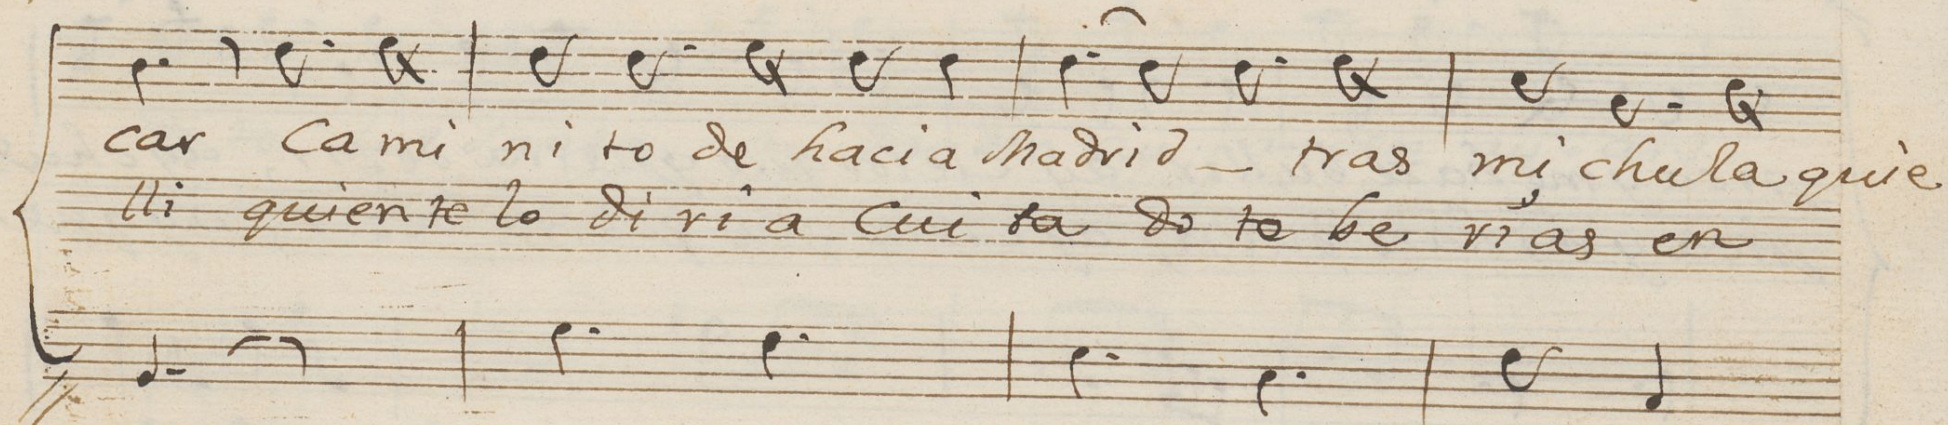 car Ca mi ni to de hacia Madrid _ tras mi chula quie
lli quien te lo di ri a Cui ta do te be rías en